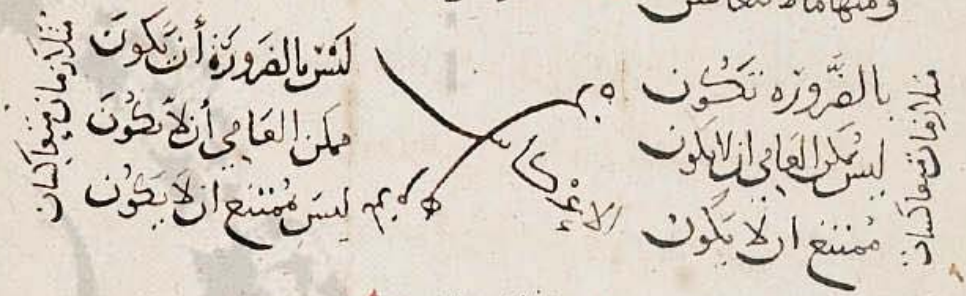 متلازمات متعاكسات
بالضَّرورَة تَكُون
ليسَ ممكن العامي ان لا يكون
ممتنع ان لا يَكُون
لَيْسَ بالضرورَة أن يَكونَ
ممكن العَامِي أن لاَ يَكُونَ
ليسَ مُمتنع ان لاَ يَكُون
متلازمات متعاكسات